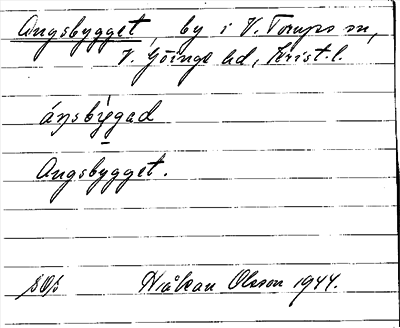 Angsbygget, by i V. Torups sn,
V. Göinge hd, Krist. l.
áŋsby̆gad
Angsbygget.
Håkan Olsson 1944.